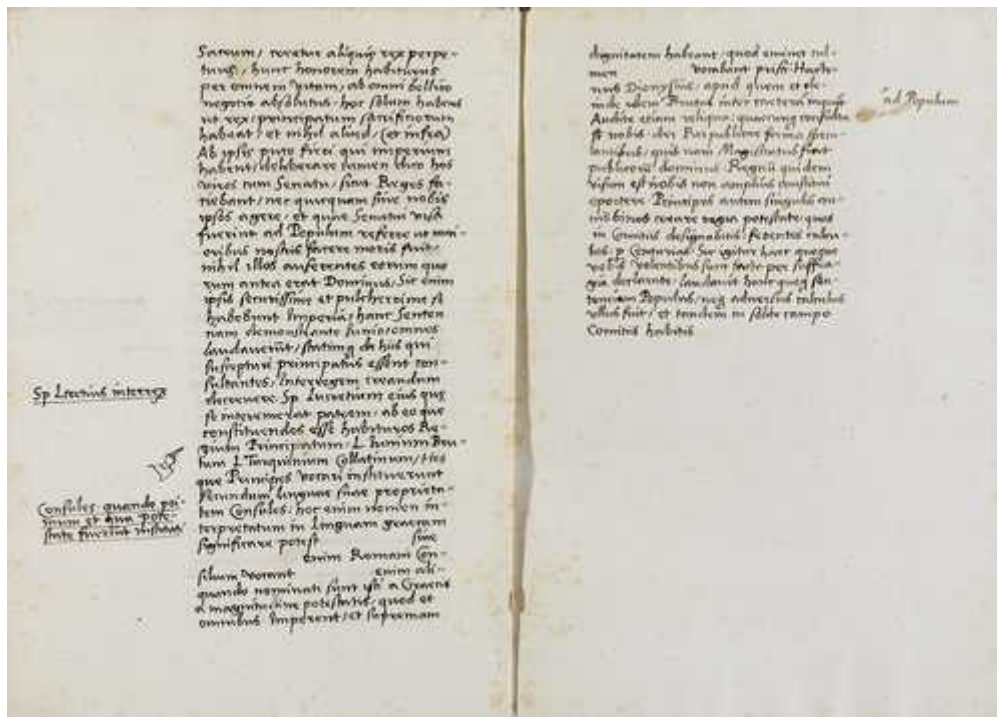 Sacrum, creetur aliquis rex perpe-
tuus, hunc honorem habiturus
per omnem vitam, ab omni bellico
negotio absolutus, hoc solum habens
ut rex, principatum sacrificiorum
habeat, et nihil aliud, (et infra)
Ab ipsis puto fieri qui imperium
habent, deliberare tamen dico hos
viros cum Senatu, sicut Reges fa-
ciebant, nec quicquam sine nobis
ipsos agere, et quae Senatui visa
fuerint ad Populum referre ut mai-
oribus nostris facere moris fuit,
nihil illos auferentes eorum quo
rum antea erat Dominus, Sic enim
ipsis securissime et pulcherrime se
habebunt Imperia, hanc Senten
tiam demonstrante Iunio, omnes
laudaverunt, statimq de his qui
suscepturi principatus essent con-
sultantes, Interregem creandum
decrevere. Sp Lucretium eius quae
se interemerat patrem, ab eo que
constituendos esse habituros Re-
gium Principatum, L Iunium Bru
tum L Tarquinium Collatinum, Hos
que Principes vocari instituerunt
secundum linguae suae proprieta-
tem Consules, hoc enim nomen in-
terpretatum in Linguam graecam
significare potest sive
enim Romani Con-
silium vocant enim ali-
quando nominati sunt isti a Graecis
a magnitudine potestatis, quod et
omnibus Imperent, et supremam
Sp Lcretius interrex
Consules quando pri-
mum et qua pote-
state fuerunt instituti
dignitatem habeant, quod eminet cul-
men vocabant prisci Hacte-
nus Dionysius, apud quem et de-
inde idem Brutus inter caetera inquit
ad Populum
Audite etiam reliqua, quae
est nobis de Reipublicae forma
quis nam Magistratus fiat
publicorum dominus Regnum quidem
visum est nobis non amplius constitui
oportere Principes autem singulis an-
nis binos creare regia potestate, quos
in Comitiis designabitis, ferentes calcu-
los, p Centurias. Sic igitur haec quoque
vobis volentibus sunt facta per suffra-
gia declarate, laudavit hanc quoq sen-
tentiam Populus, neq adversus calculus
ullus fuit, et tandem in solito campo
Comitiis habitis